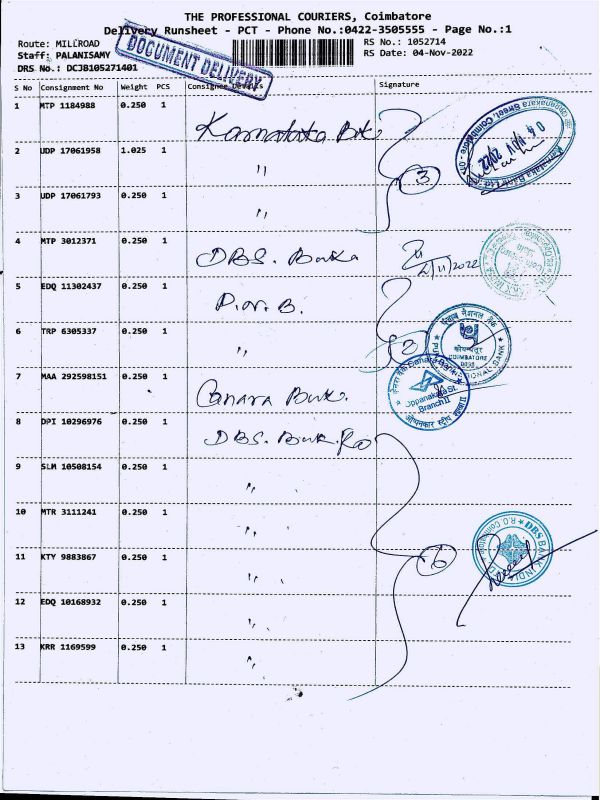 THE PROFESSIONAL COURIERS, Coimbatore
Delivery Runsheet - PCT - Phone No.:0422-3505555 - Page No.:1
Route: MILLROAD
RS No.: 1052714
Staff: PALANISAMY
RS Date: 04-Nov-2022
DRS No.: DCJB105271401
DOCUMENT DELIVERY
S No Consignment No Weight PCS Consignee Details Signature
1 MTP 1184988 0.250 1
Karnataka Bk.
2 UDP 17061958 1.025 1 "
3
3 UDP 17061793 0.250 1 "
4 MTP 3012371 0.250 1 DBS. Banka
4/11/2022
5 EDQ 11302437 0.250 1 P.N.B.
6 TRP 6305337 0.250 1 "
2
पंजाब नैशनल बैंक
कोयम्बत्तूर
COIMBATORE
NATIONAL BANK
7 MAA 292598151 0.250 1 Canara Bank.
Canara Bank
Oppanakara St.
Branch II
8 DPI 10296976 0.250 1 DBS. Bank. Ro
9 SLM 10508154 0.250 1 "
10 MTR 3111241 0.250 1 "
DBS BANK INDIA
R.O Coimbatore
11 KTY 9883867 0.250 1 "
6
12 EDQ 10168932 0.250 1 "
13 KRR 1169599 0.250 1 "